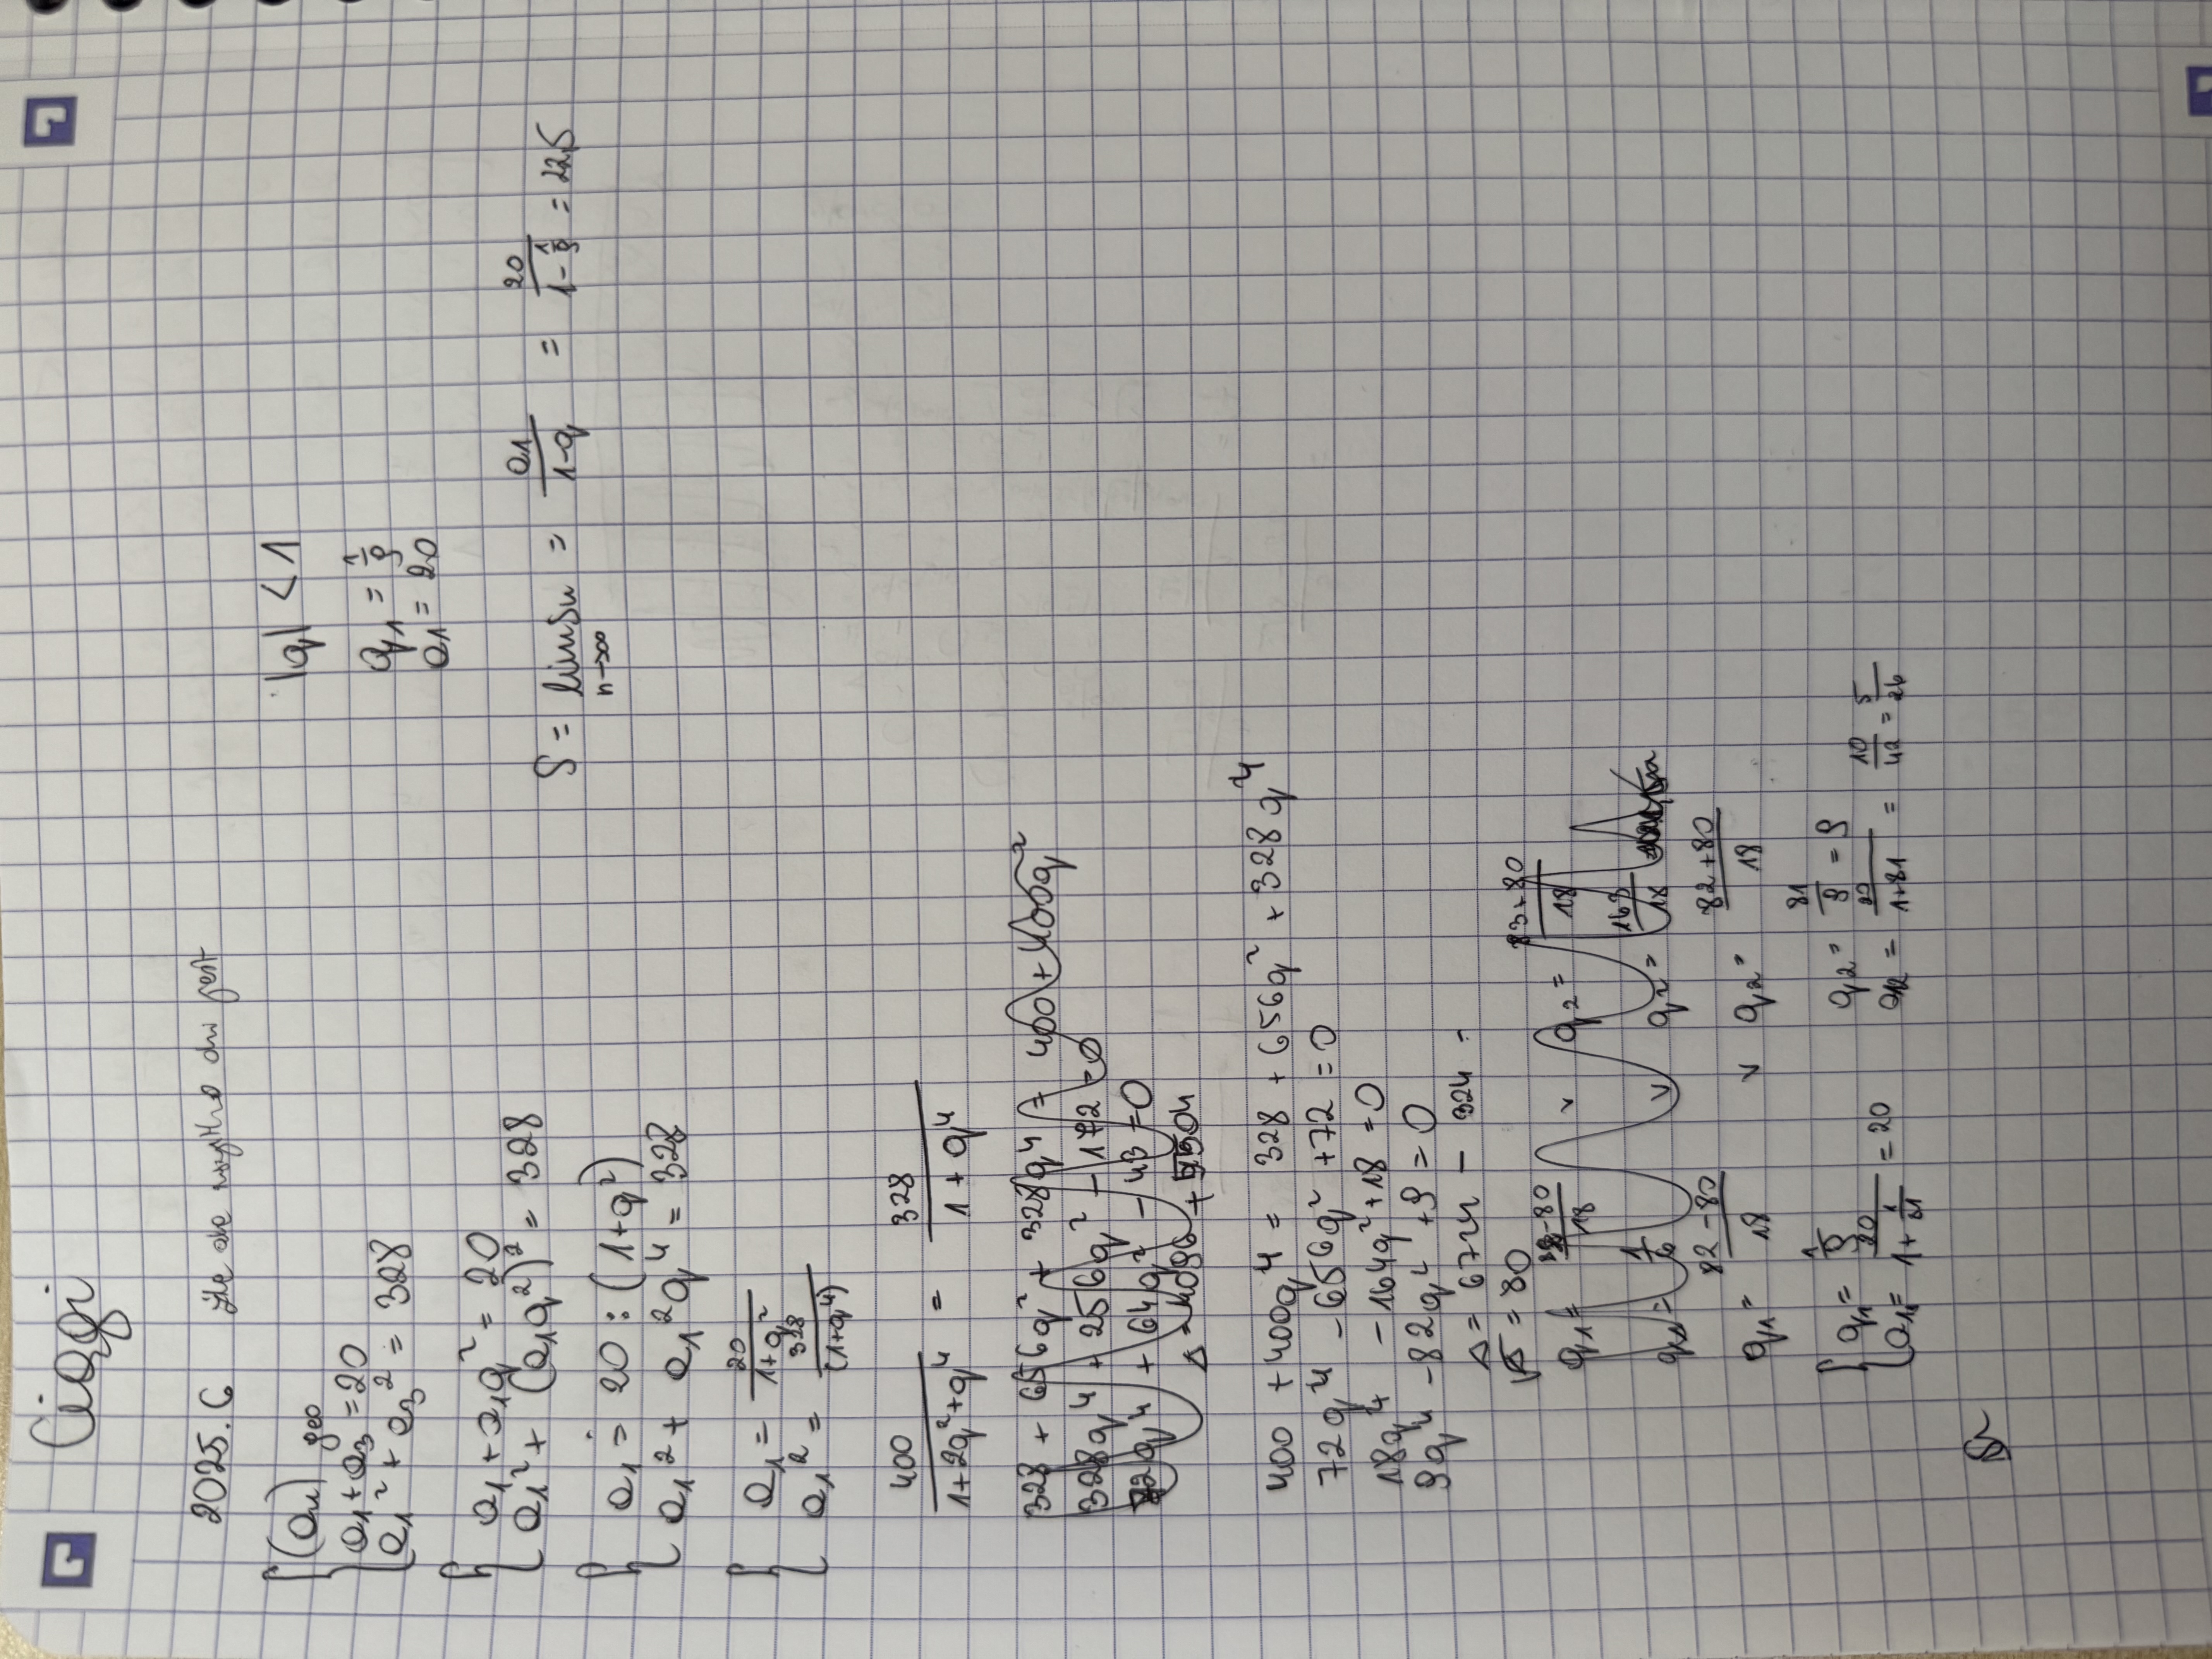 Ciągi
2025.6
{ (an) geo
a1 + a3 = 20
a1² + a3² = 328
{ a1 + a1q² = 20
a1² + (a1q²)² = 328
{ a1 = 20 : (1+q²)
a1² + a1²q⁴ = 328
{ a1 = 20/(1+q²)
a1² = 328/(1+q⁴)
400/(1+2q²+q⁴) = 328/(1+q⁴)
328 + 656q² + 328q⁴ = 400 + 400q²
328q⁴ + 256q² - 172 = 0
+ 64q² - 43 = 0
400 + 400q⁴ = 328 + 656q² + 328q⁴
72q⁴ - 656q² + 72 = 0
18q⁴ - 164q² + 18 = 0
9q⁴ - 82q² + 9 = 0
Δ = 6724 - 324 =
√Δ = 80
q1 = -80/18 v q2 = 83+80/18
v q2 = 163/18
q1 = (82-80)/18 v q2 = (82+80)/18
{ q1 = 1/9 q2 = 81/9 = 9
a1 = 20/(1+1/81) = 20 a12 = 20/(1+81) = 10/42 = 5/26
|q| < 1
q1 = 1/9
a1 = 20
S = lim Sn = a1/(1-q) = 20/(1-1/9) = 22,5
n→∞